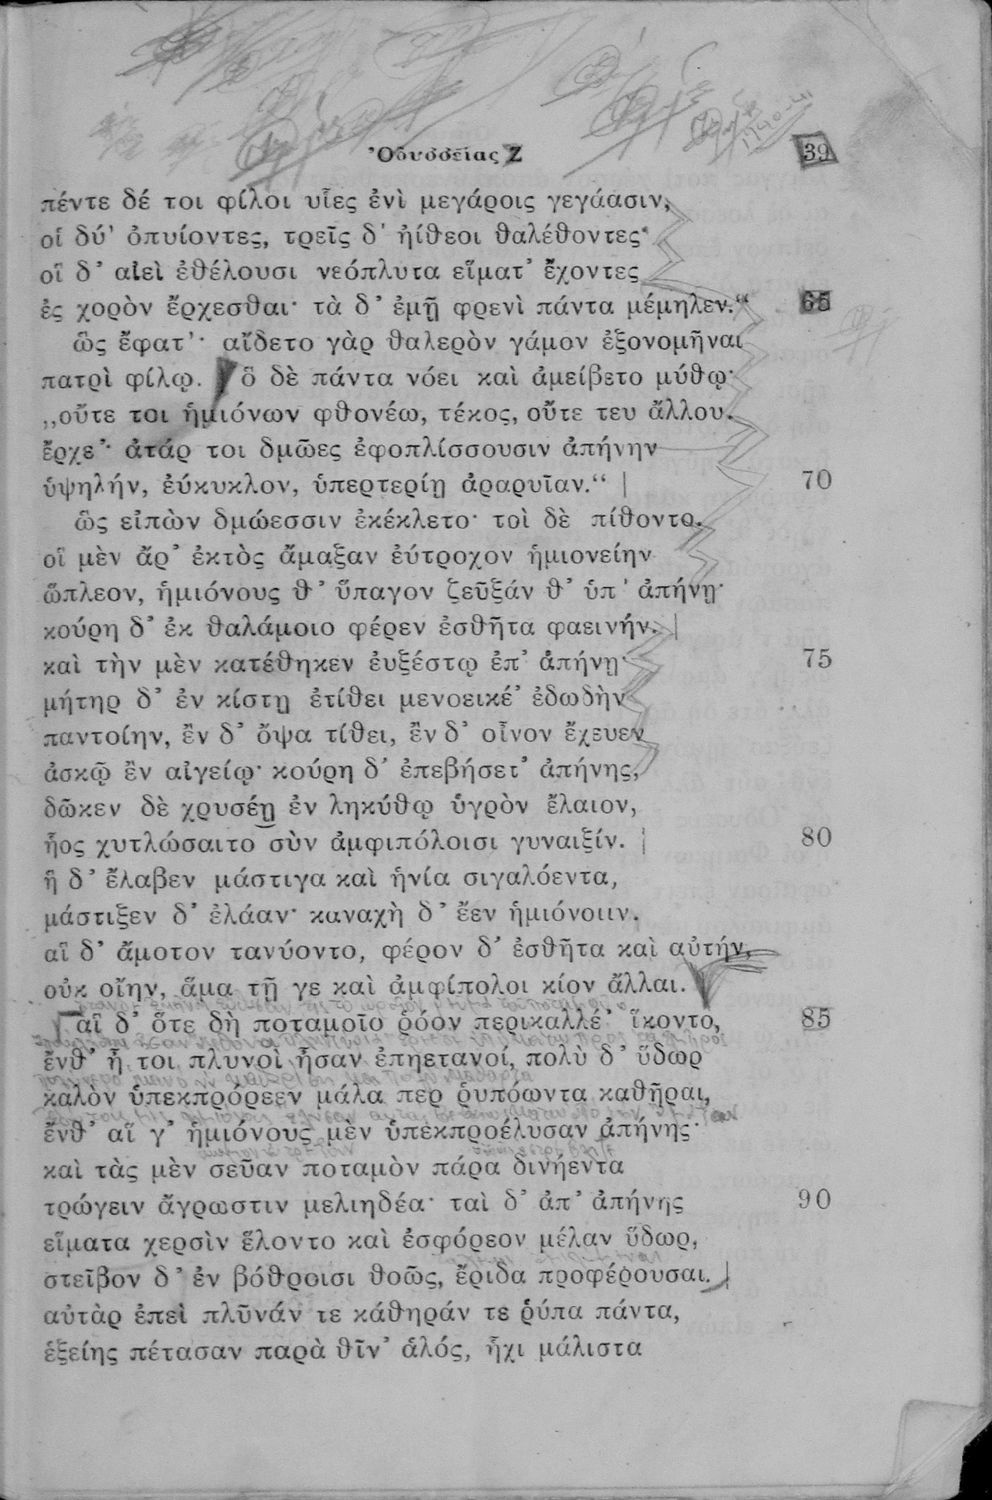 Ὀδυσσείας Ζ 39
πέντε δέ τοι φίλοι υἷες ἐνὶ μεγάροις γεγάασιν,
οἱ δύ' ὀπυίοντες, τρεῖς δ' ἠίθεοι θαλέθοντες·
οἳ δ' αἰεὶ ἐθέλουσι νεόπλυτα εἵματ' ἔχοντες
ἐς χορὸν ἔρχεσθαι· τὰ δ' ἐμῇ φρενὶ πάντα μέμηλεν.“ 65
ὣς ἔφατ'· αἴδετο γὰρ θαλερὸν γάμον ἐξονομῆναι
πατρὶ φίλῳ. ὃ δὲ πάντα νόει καὶ ἀμείβετο μύθῳ·
„οὔτε τοι ἡμιόνων φθονέω, τέκος, οὔτε τευ ἄλλου.
ἔρχε'· ἀτάρ τοι δμῶες ἐφοπλίσσουσιν ἀπήνην
ὑψηλήν, ἐύκυκλον, ὑπερτερίῃ ἀραρυῖαν.“ 70
ὣς εἰπὼν δμώεσσιν ἐκέκλετο· τοὶ δὲ πίθοντο.
οἳ μὲν ἄρ' ἐκτὸς ἄμαξαν ἐύτροχον ἡμιονείην
ὥπλεον, ἡμιόνους θ' ὕπαγον ζεῦξάν θ' ὑπ' ἀπήνῃ·
κούρη δ' ἐκ θαλάμοιο φέρεν ἐσθῆτα φαεινήν.
καὶ τὴν μὲν κατέθηκεν ἐυξέστῳ ἐπ' ἀπήνῃ· 75
μήτηρ δ' ἐν κίστῃ ἐτίθει μενοεικέ' ἐδωδὴν
παντοίην, ἒν δ' ὄψα τίθει, ἒν δ' οἶνον ἔχευεν
ἀσκῷ ἒν αἰγείῳ· κούρη δ' ἐπεβήσετ' ἀπήνης,
δῶκεν δὲ χρυσέῃ ἐν ληκύθῳ ὑγρὸν ἔλαιον,
ἧος χυτλώσαιτο σὺν ἀμφιπόλοισι γυναιξίν. 80
ἣ δ' ἔλαβεν μάστιγα καὶ ἡνία σιγαλόεντα,
μάστιξεν δ' ἐλάαν· καναχὴ δ' ἔεν ἡμιόνοιιν.
αἳ δ' ἄμοτον τανύοντο, φέρον δ' ἐσθῆτα καὶ αὐτήν,
οὐκ οἴην, ἅμα τῇ γε καὶ ἀμφίπολοι κίον ἄλλαι.
αἳ δ' ὅτε δὴ ποταμοῖο ῥόον περικαλλέ' ἵκοντο, 85
ἔνθ' ἦ τοι πλυνοὶ ἦσαν ἐπηετανοί, πολὺ δ' ὕδωρ
καλὸν ὑπεκπρόρεεν μάλα περ ῥυπόωντα καθῆραι,
ἔνθ' αἵ γ' ἡμιόνους μὲν ὑπεκπροέλυσαν ἀπήνης·
καὶ τὰς μὲν σεῦαν ποταμὸν πάρα δινήεντα
τρώγειν ἄγρωστιν μελιηδέα· ταὶ δ' ἀπ' ἀπήνης 90
εἵματα χερσὶν ἕλοντο καὶ ἐσφόρεον μέλαν ὕδωρ,
στεῖβον δ' ἐν βόθροισι θοῶς, ἔριδα προφέρουσαι.
αὐτὰρ ἐπεὶ πλῦνάν τε κάθηράν τε ῥύπα πάντα,
ἑξείης πέτασαν παρὰ θῖν' ἁλός, ἧχι μάλιστα